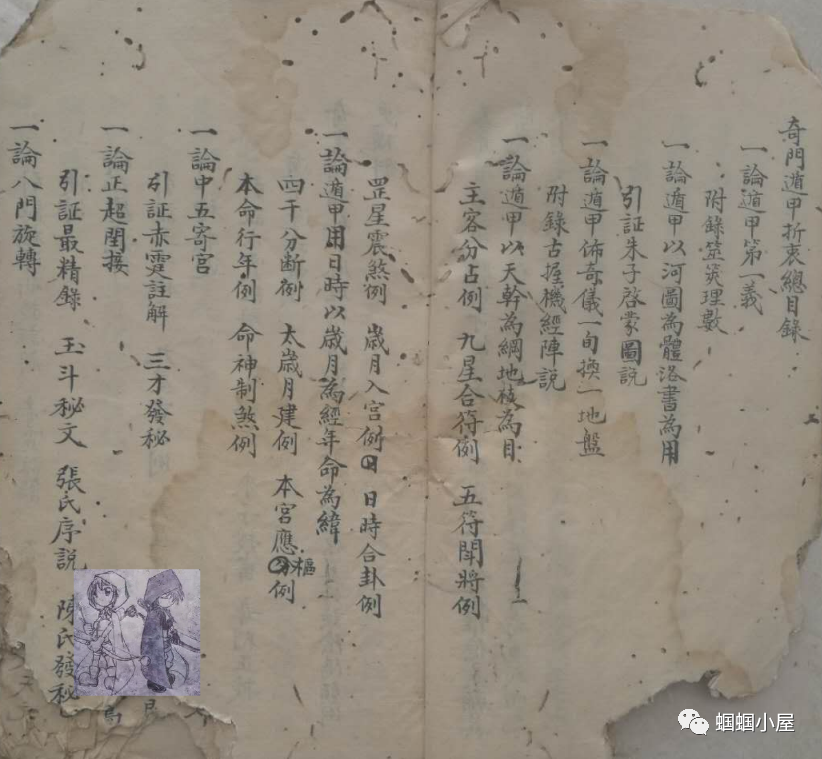 奇門遁甲折衷總目錄
一論遁甲第一義
附錄筮筴理數
一論遁甲以河圖為體洛書為用
引証朱子啓蒙圖説
一論遁甲佈奇儀一旬換一地盤
附錄古握機經陣説
一論遁甲以天幹為綱地枝為目
主客分占例 九星合符例 五符聞將例
罡星震煞例 歳月入宮例 日時合卦例
一論遁甲用日時以歳月為經年命為緯
四干分断例 太歳月建例 本宮應樞例
本命行年例 命神制煞例
一論中五寄宮
引証赤霆註解 三才發秘
一論正超閏接
引証最精錄 玉斗秘文 張氏序説 陳氏發秘
一論八門旋轉
蝈蝈小屋